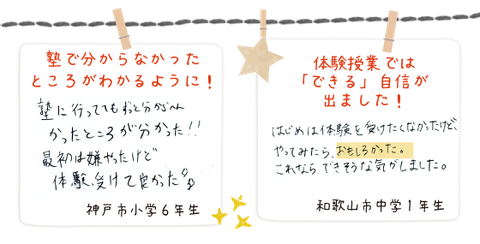 塾で分からなかった
ところがわかるように！
塾に行っててもずっと分からへん
かったところが分かった!!
最初は嫌やったけど
体験、受けて良かった
神戸市小学6年生
体験授業では
「できる」自信が
出ました！
はじめは体験を受けたくなかったけど、
やってみたら、おもしろかった。
これなら、できそうな気がしました。
和歌山市中学1年生